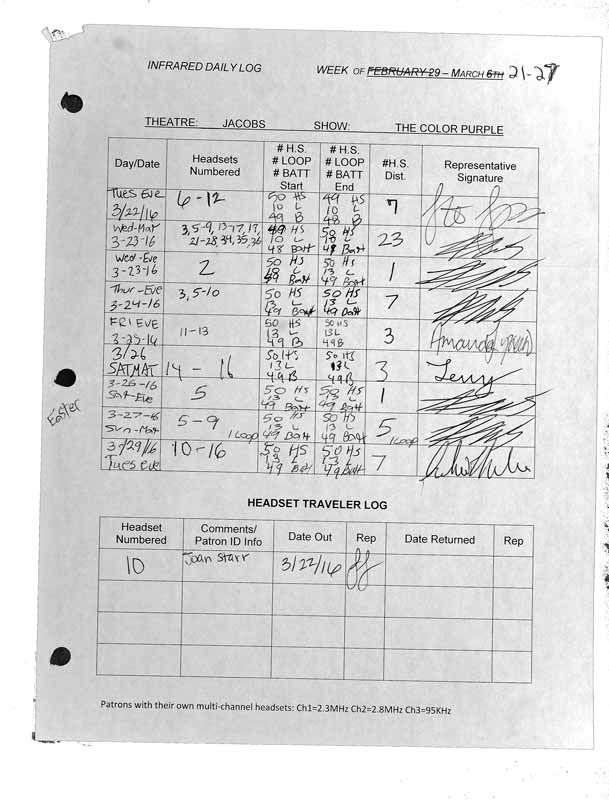 INFRARED DAILY LOG WEEK OF FEBRUARY 29 – MARCH 6TH 21-27
THEATRE: JACOBS SHOW: THE COLOR PURPLE
Day/Date Headsets Numbered # H.S. # LOOP # BATT Start # H.S. # LOOP # BATT End #H.S. Dist. Representative Signature
Tues Eve 3/22/16 6-12 50 HS 10 L 49 B 49 HS 10 L 48 B 7
Wed-Mat 3-23-16 3, 5-9, 13-17, 19, 21-28 34, 35, 36 49 HS 10 L 48 Batt 50 HS L 48 Batt 23
Wed-Eve 3-23-16 2 50 HS L 49 Batt 50 HS 13 L 49 Batt 1
Thur-Eve 3-24-16 3, 5-10 50 HS 13 L 49 Batt 50 HS 13 L 49 Batt 7
FRI EVE 3-25-16 11-13 50 HS 13 L 49 B 50 HS 13 L 49 B 3 Amanda
3/26 SATMAT 14 - 16 50 HS 13 L 49 B 50 HS 13 L 49 B 3 Jerry
3-26-16 Sat-Eve 5 50 HS 13 L 49 Batt 50 HS 13 L 49 Batt 1
Easter
3-27-16 Sun-Mat 5-9 1 Loop 50 HS 13 L 49 Batt 50 HS 13 L 49 Batt 5 1 Loop
3/29/16 Tues eve 10-16 50 HS 13 L 49 Batt 50 HS 13 L 49 Batt 7
HEADSET TRAVELER LOG
Headset Numbered Comments/ Patron ID Info Date Out Rep Date Returned Rep
10 Joan Starr 3/22/16
Patrons with their own multi-channel headsets: Ch1=2.3MHz Ch2=2.8MHz Ch3=95KHz